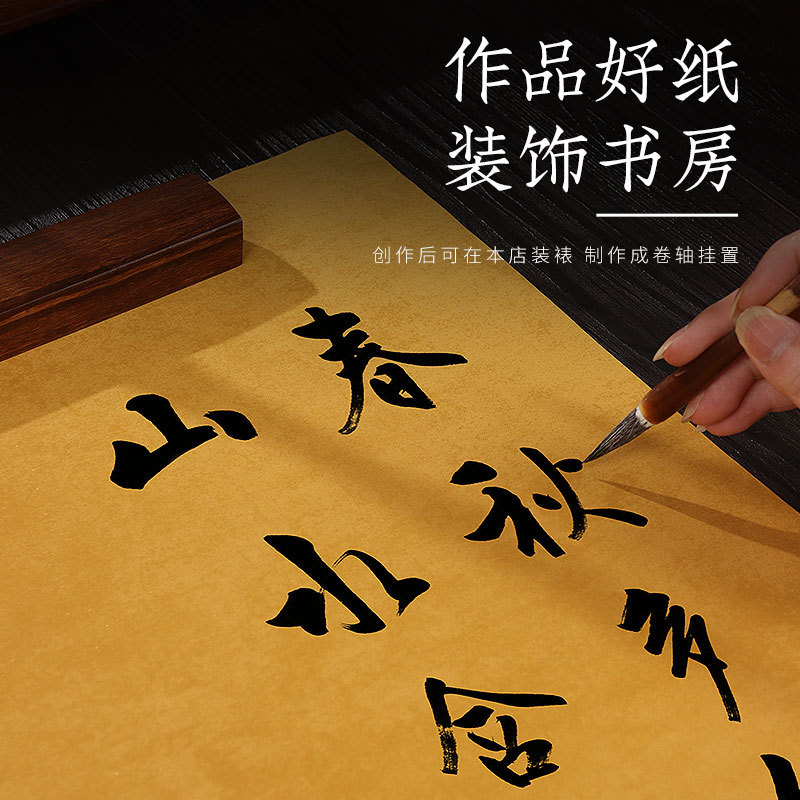 作品好纸
装饰书房
创作后可在本店装裱 制作成卷轴挂置
春秋多
山水含